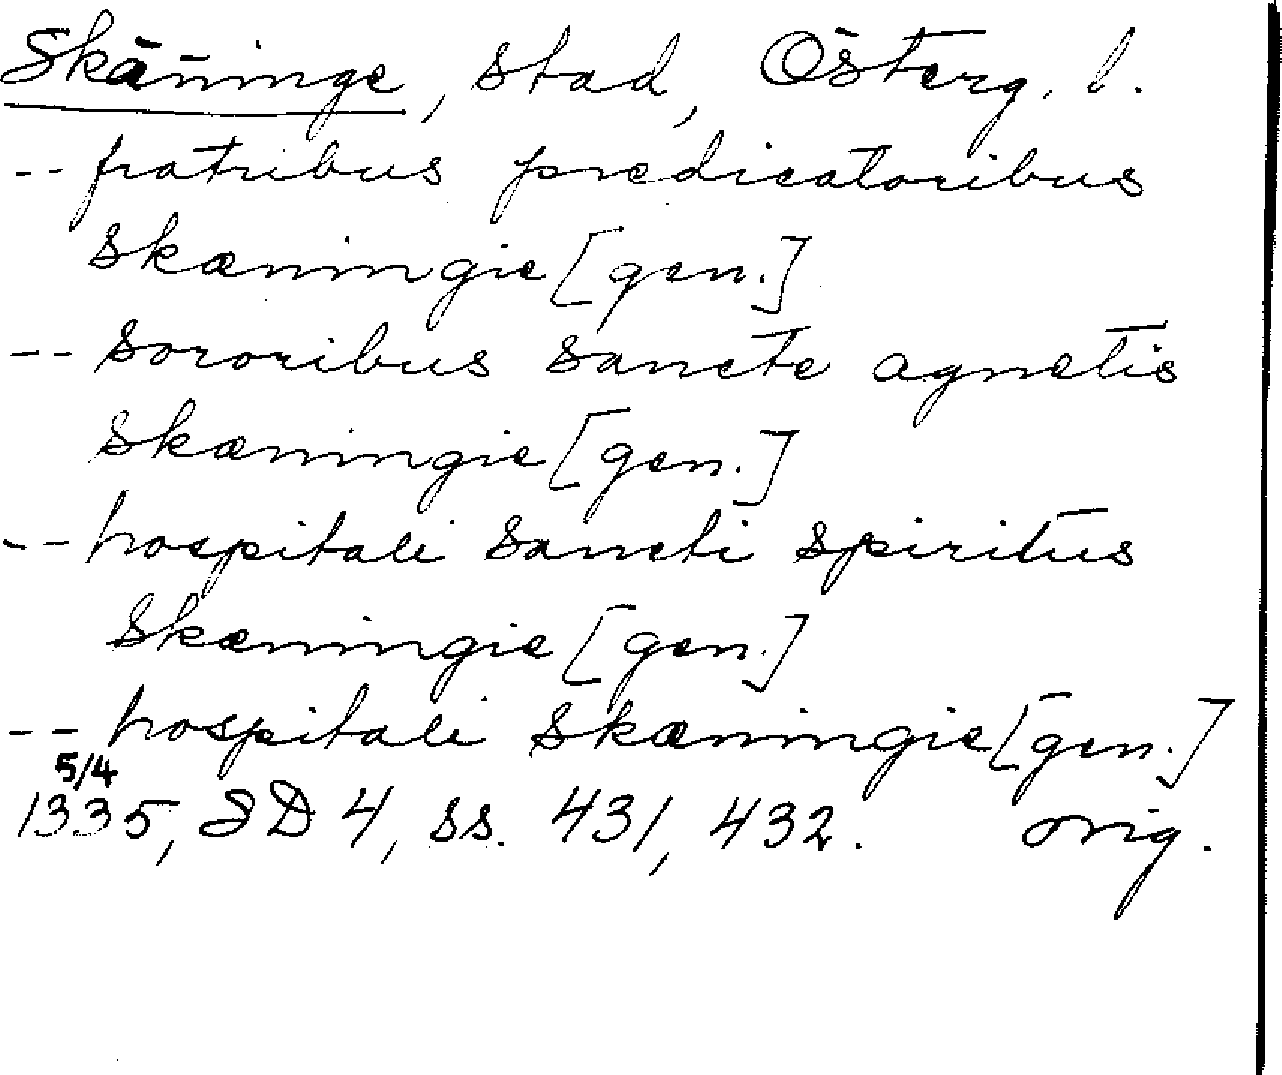 Skänninge, stad, Österg. l.
-- fratribus predicatoribus
skæningie [gen.]
-- sororibus sancte agnetis
skæningie [gen.]
-- hospitali sancti spiritus
skæningie [gen.]
-- hospitali skæningie [gen.]
5/4
1335, SD 4, ss. 431, 432. orig.